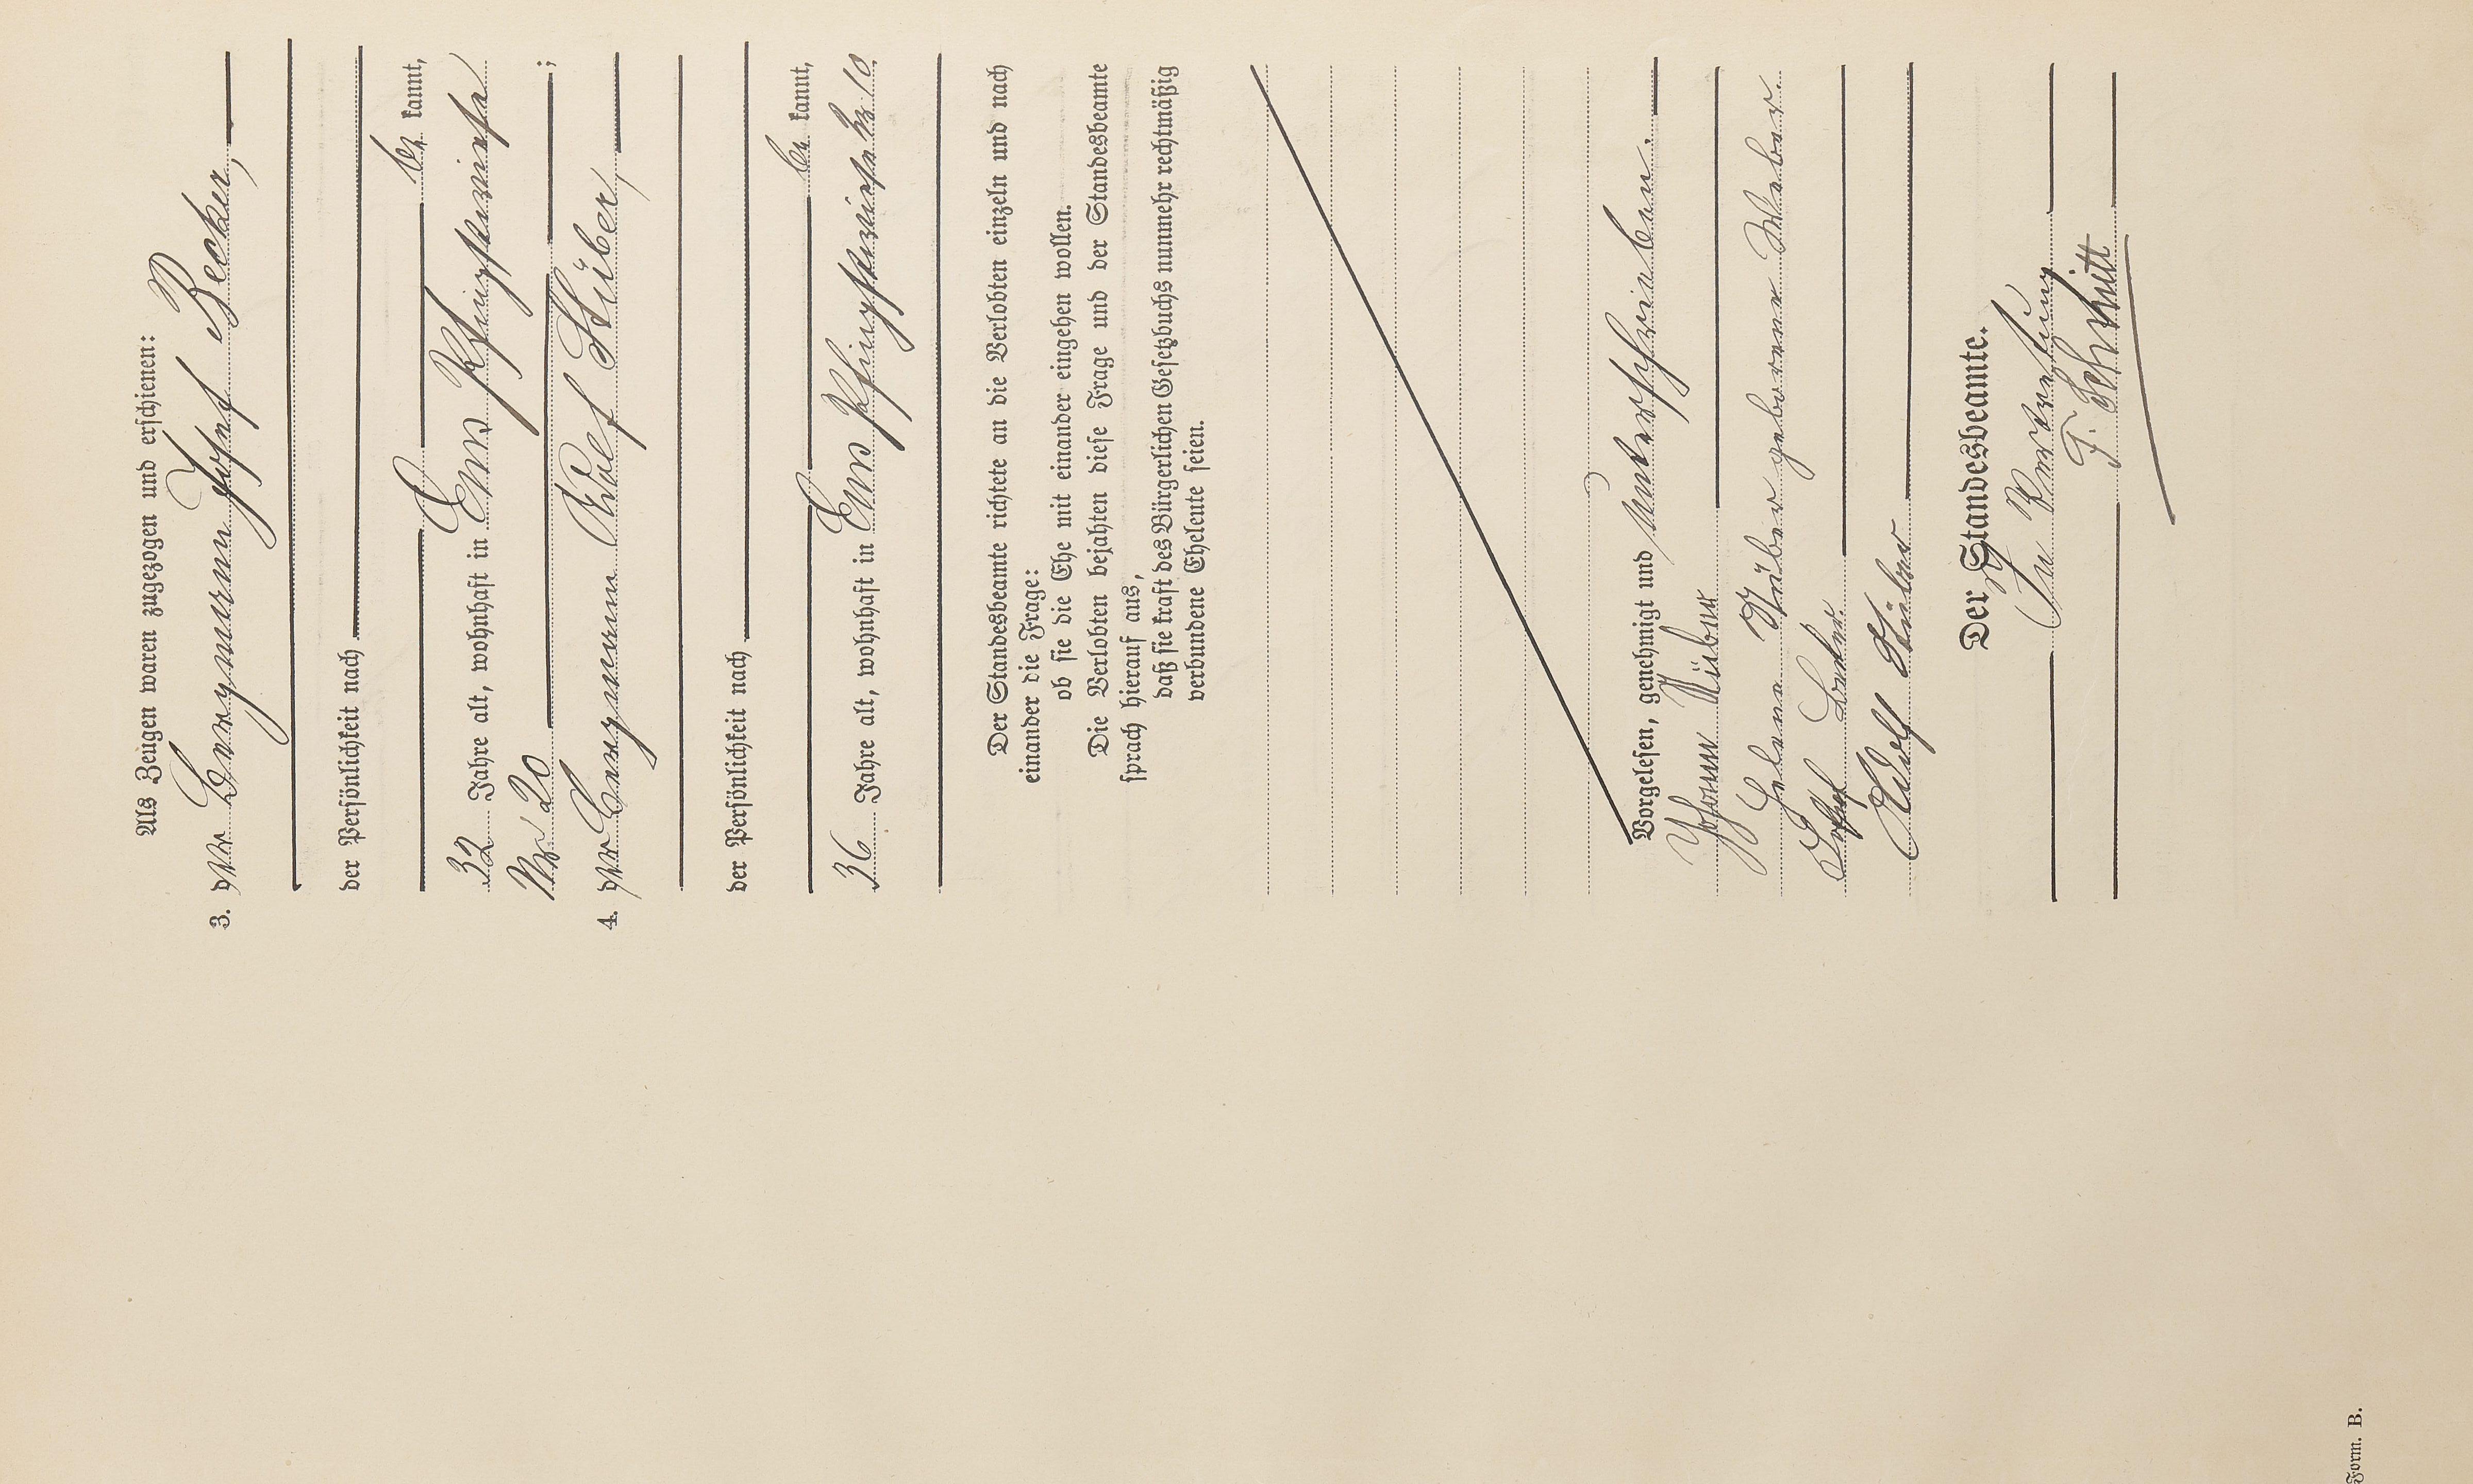 Als Zeugen waren zugezogen und erschienen:
3. der Bergmann Josef Becker,
der Persönlichkeit nach
be kannt,
32 Jahre alt, wohnhaft in Ems Pfingstwiese
Nr 20 ;
4. der Bergmann Adolf Stüber,
der Persönlichkeit nach
be kannt,
36 Jahre alt, wohnhaft in Ems Pfingstwiese Nr 10.
Der Standesbeamte richtete an die Verlobten einzeln und nach
einander die Frage:
ob sie die Ehe mit einander eingehen wollen.
Die Verlobten bejahten diese Frage und der Standesbeamte
sprach hierauf aus,
daß sie kraft des Bürgerlichen Gesetzbuchs nunmehr rechtmäßig
verbundene Eheleute seien.
Vorgelesen, genehmigt und unterschrieben.
Johann Stüber
Helene Stüber geborene Weber.
Josef Becker.
Adolf Stüber
Der Standesbeamte.
In Vertretung
F. Schmitt
Form. B.